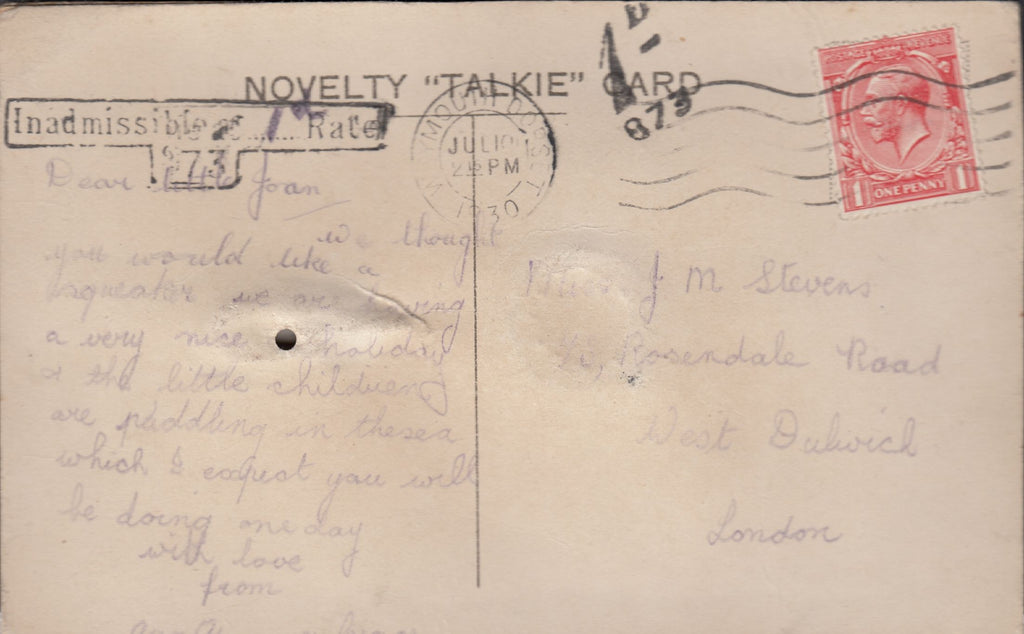 NOVELTY "TALKIE" CARD
Inadmissible at ...... Rate
273
D
1
873
WEYMOUTH DORSET
JUL 10
2 15 PM
1930
ONE PENNY
1 1
Dear little Joan
we thought
you would like a
squeaker we are having
a very nice holiday
& the little children
are paddling in the sea
which I expect you will
be doing one day
with love
from
J M Stevens
Rosendale Road
West Dulwich
London